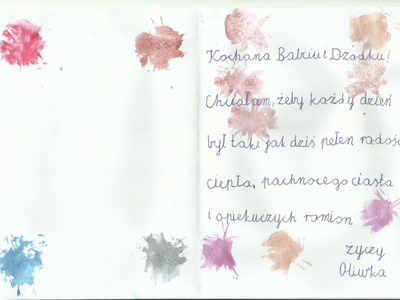 Kochana Babciu i Dziadku!
Chciałam, żeby każdy dzień
był taki jak dziś pełen radości
ciepła, pachnącego ciasta
i opiekuczych ramion
życzy
Oliwka